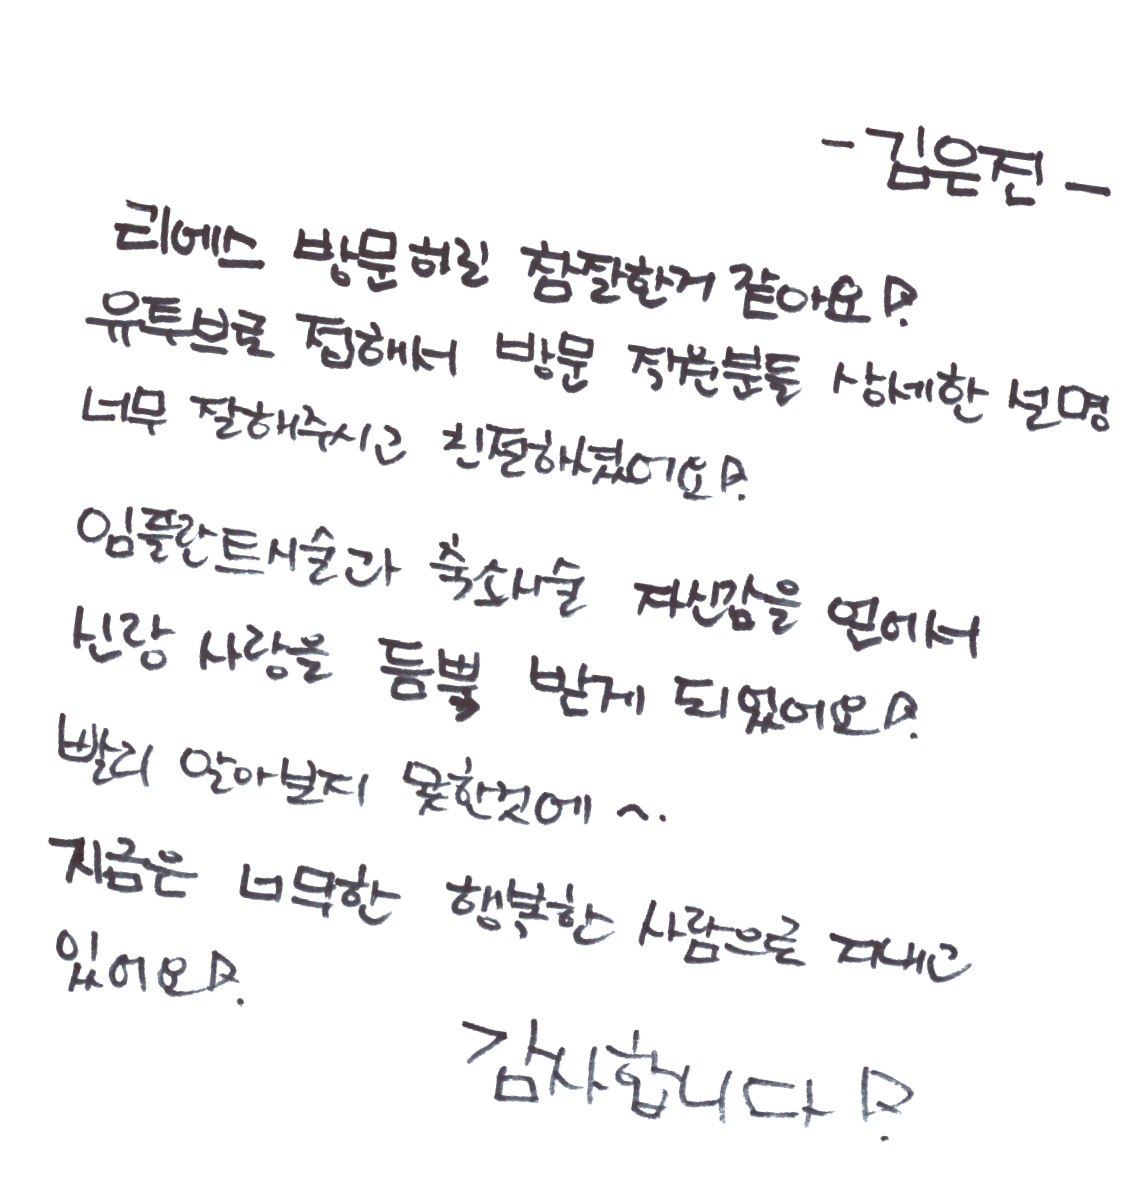 -김은진-
리에스 방문허길 참잘한거 같아요!
유투브로 접해서 방문 직원분들 상세한 설명
너무 잘해주시고 친절하셨어요!
임플란트시술과 축소시술 자신감을 얻어서
신랑 사랑을 듬뿍 받게 되었어요!
빨리 알아보지 못한것에 ~.
지금은 너무한 행복한 사람으로 지내고
있어요!
감사합니다!